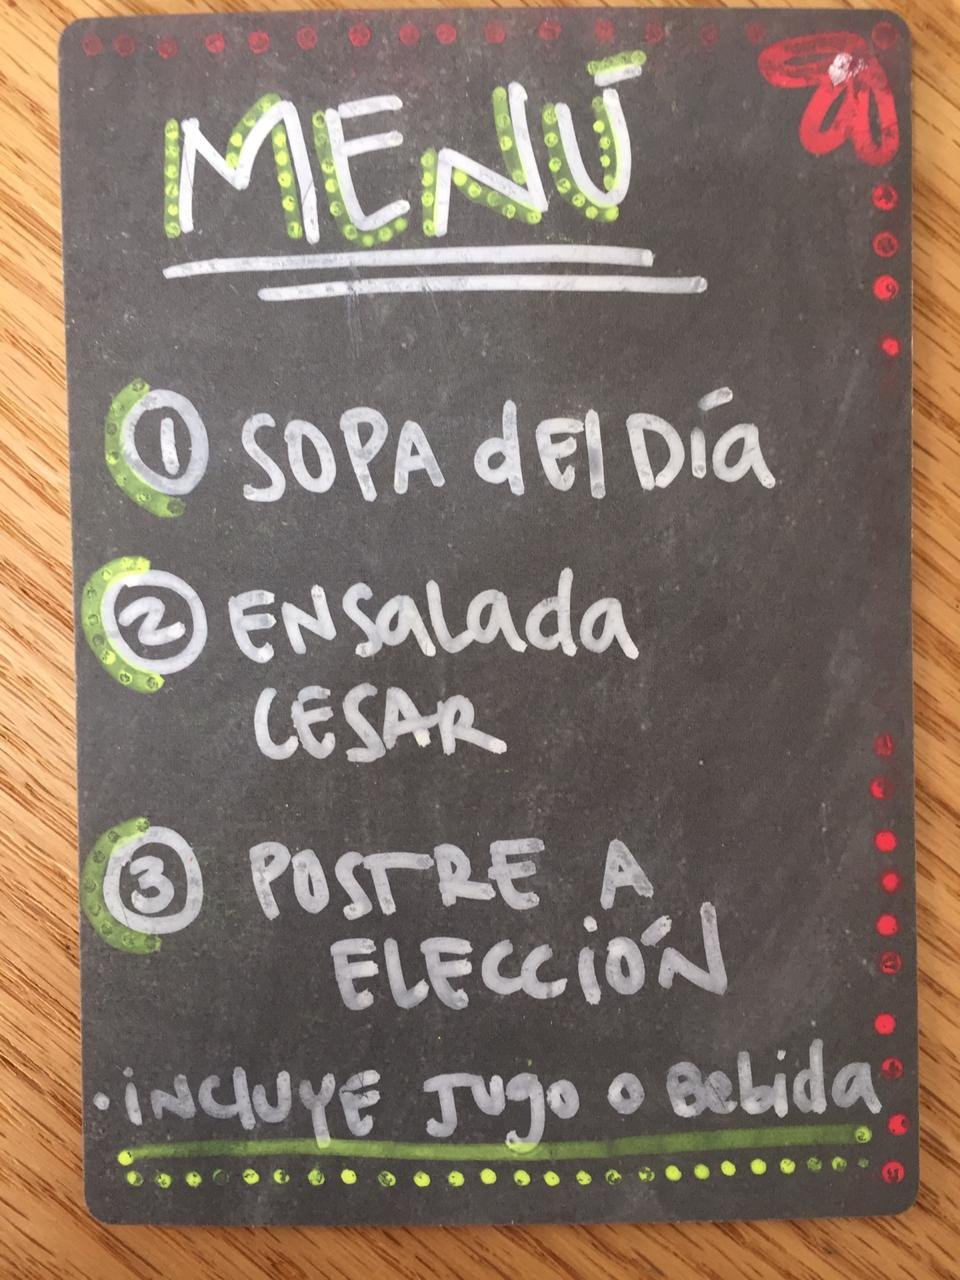 MENÚ
1 SOPA dEl Día
2 ENSalada
CESAR
3 POSTRE A
ELECCiÓN
·iNCluYE Jugo o Bebida